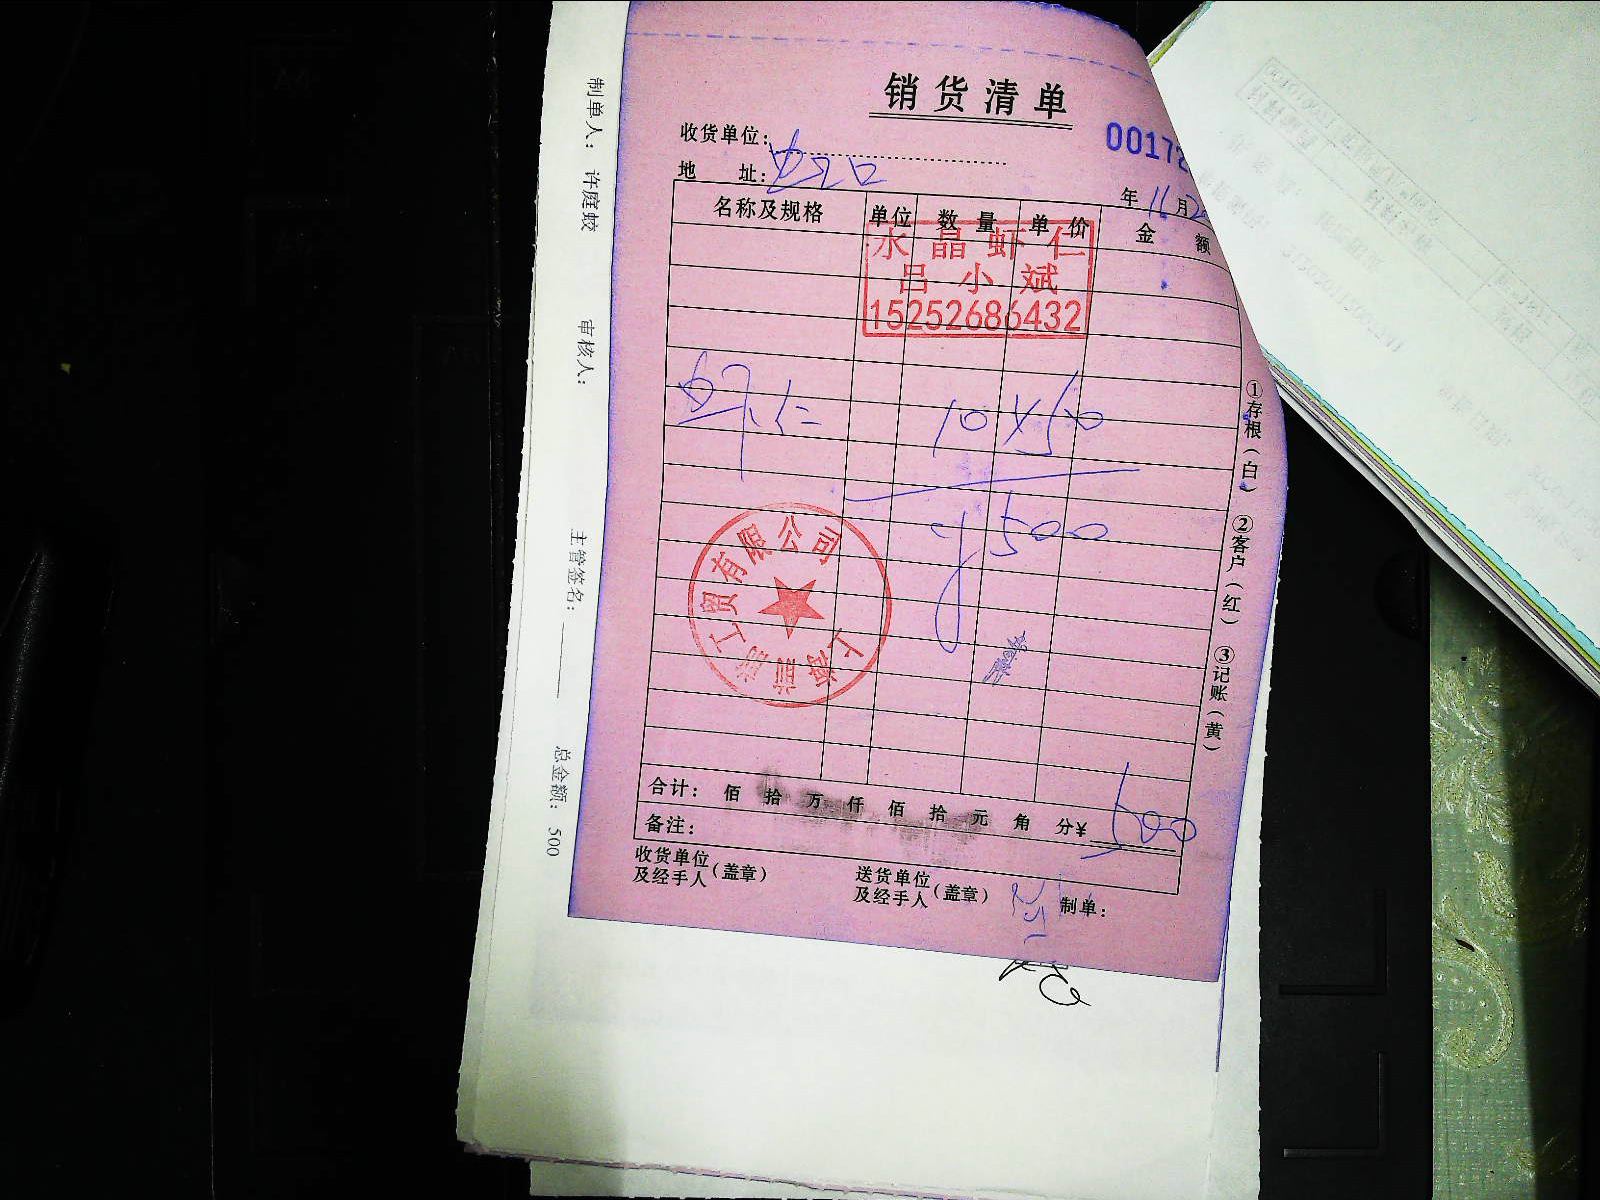 销货清单
收货单位:
00178
地 址:
年 11月2
名称及规格 单位 数量 单价 金额
水晶虾仁
吕小斌
15252686432
虾仁 10×50
500
上海
工贸有限公司
①存根(白) ②客户(红) ③记账(黄)
合计: 佰 拾 万 仟 佰 拾 元 角 分¥ 500
备注:
收货单位及经手人(盖章) 送货单位及经手人(盖章) 制单:
制单人: 许庭蛟 审核人: 主管签名: 总金额: 500